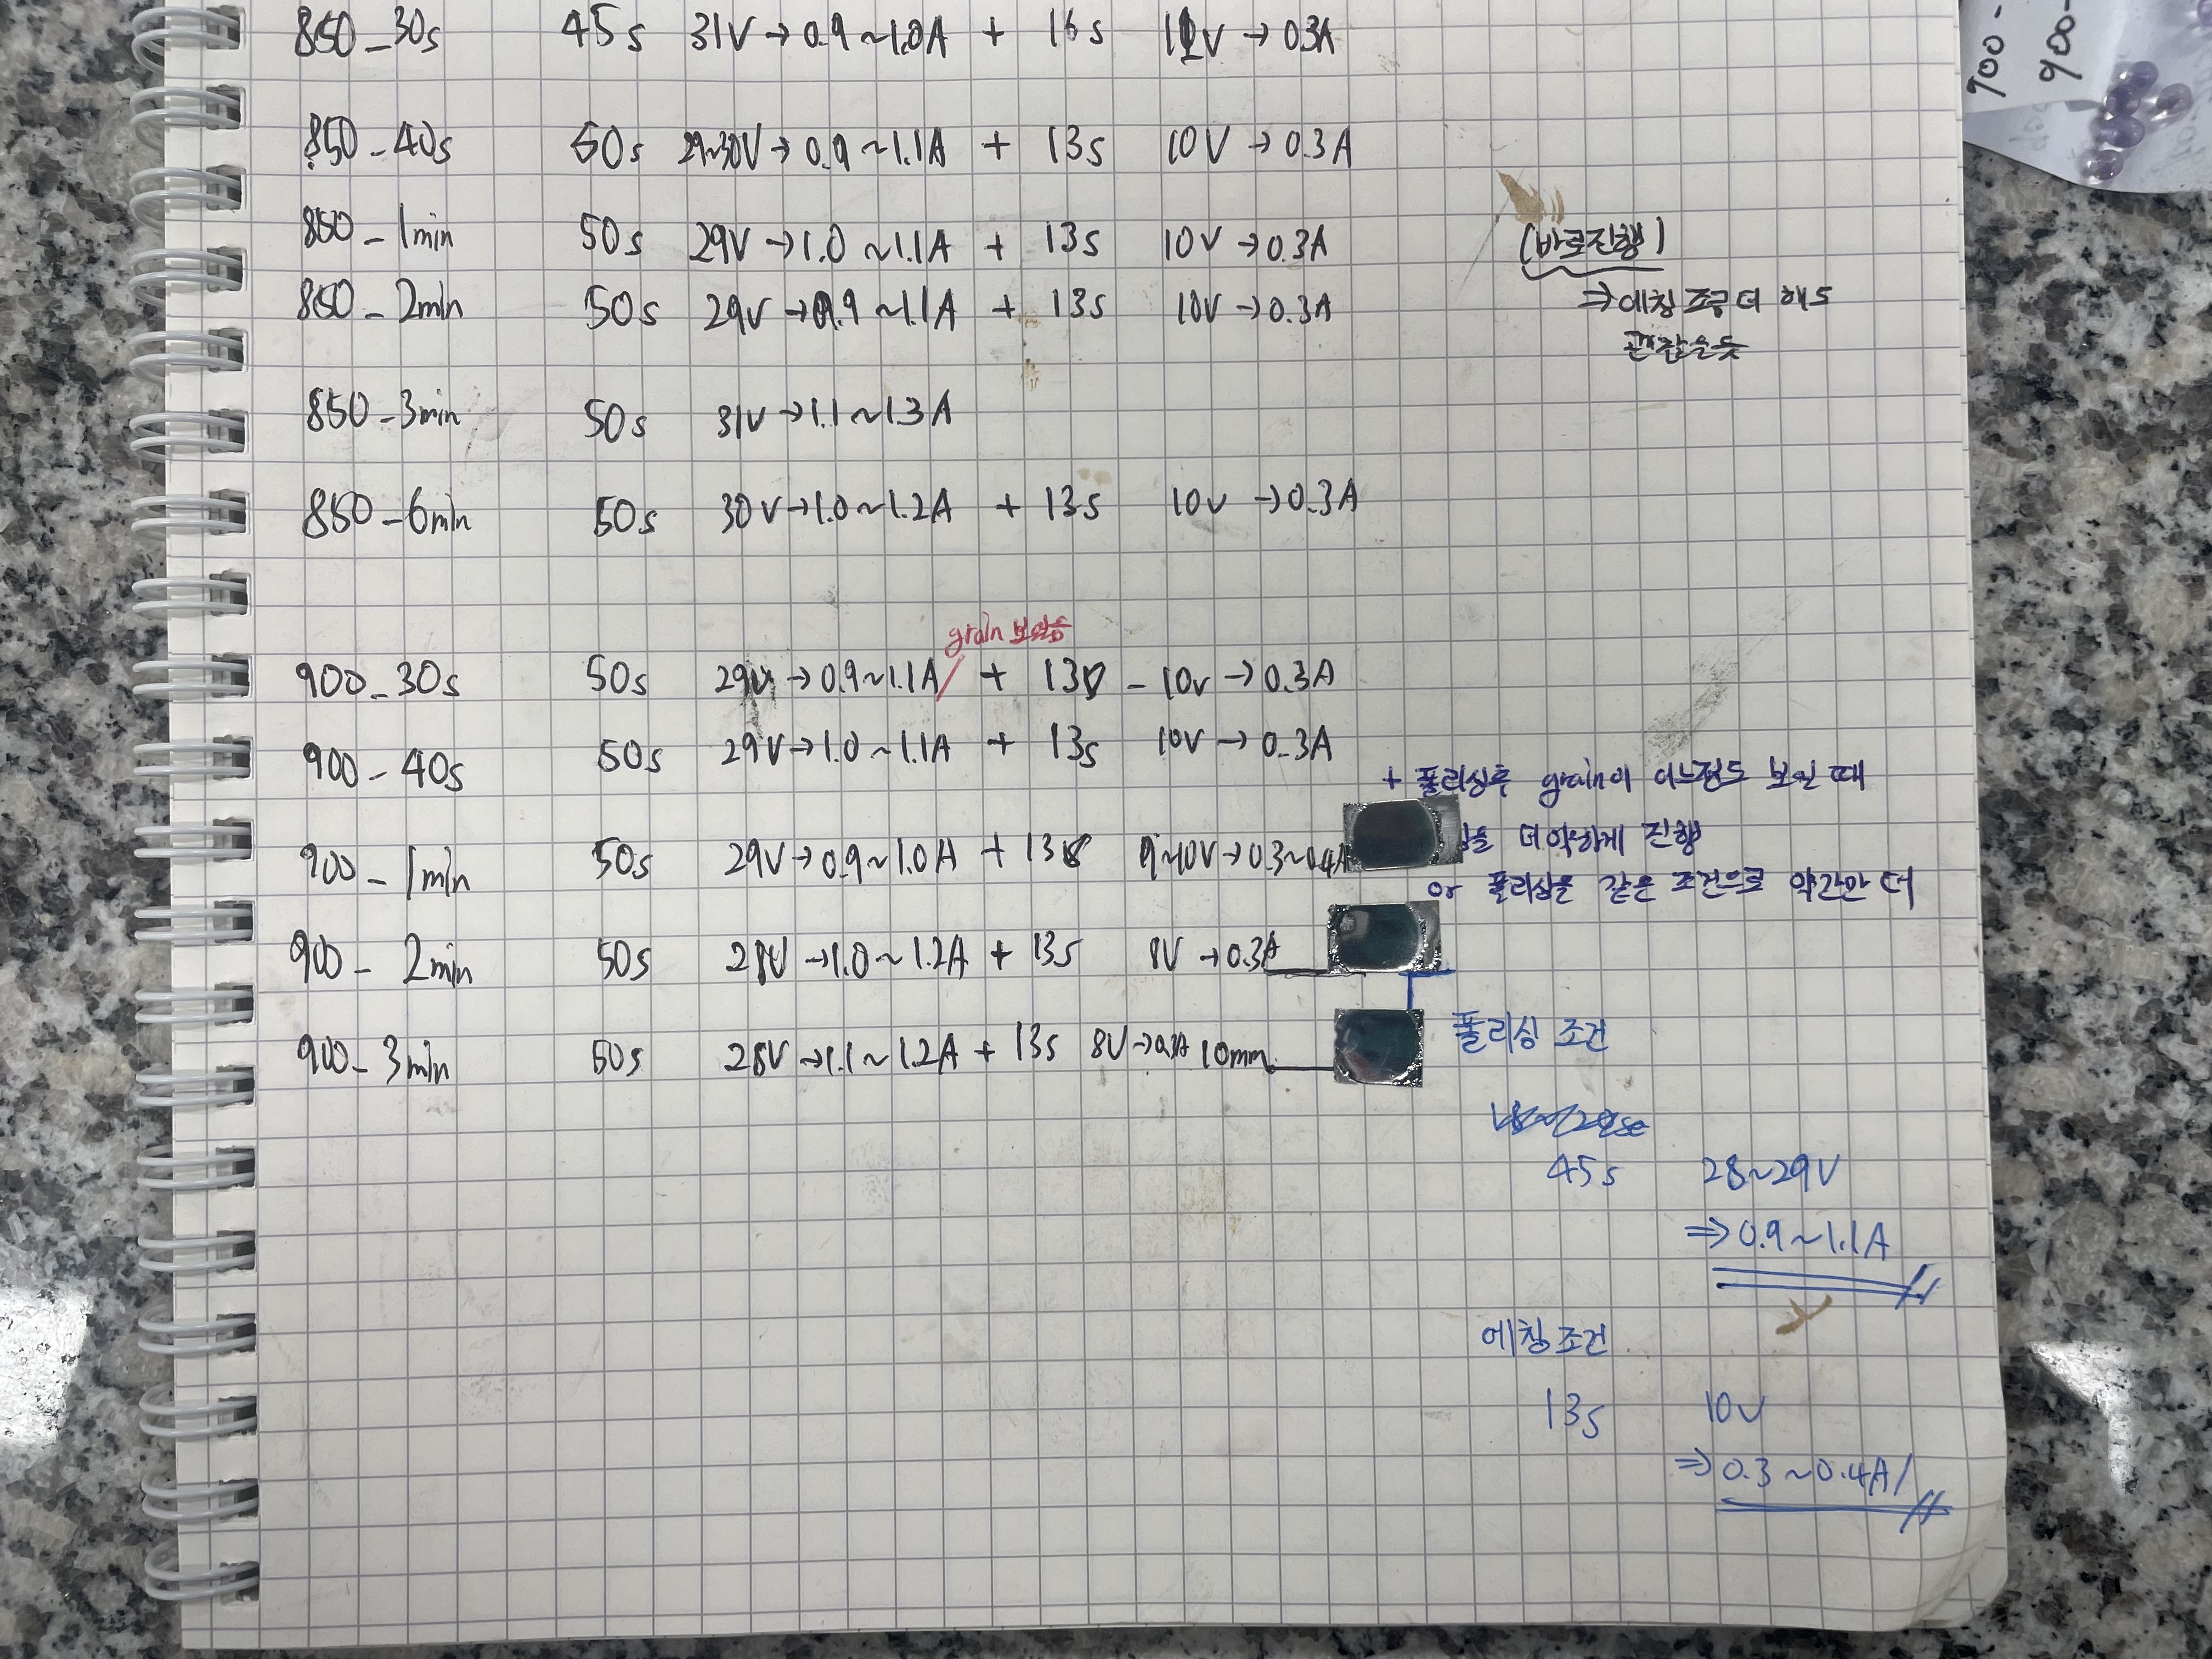 850-30s 45s 31V → 0.9~1.0A + 15s 12V → 0.3A
850-40s 50s 29~30V → 0.9~1.1A + 13s 10V → 0.3A
850-1min 50s 29V → 1.0~1.1A + 13s 10V → 0.3A (바로진행)
850-2min 50s 29V → 0.9~1.1A + 13s 10V → 0.3A ⇒ 에칭 조금 더 해도
괜찮을듯
850-3min 50s 31V → 1.1~1.3A
850-6min 50s 30V → 1.0~1.2A + 13s 10V → 0.3A
grain 보였음
900-30s 50s 29V → 0.9~1.1A / + 13 - 10V → 0.3A
900-40s 50s 29V → 1.0~1.1A + 13s 10V → 0.3A
+ 폴리싱후 grain이 어느정도 보일 때
을 더 약하게 진행
900-1min 50s 29V → 0.9~1.0A + 13s 9~10V → 0.3~0.4A
or 폴리싱을 같은 조건으로 약간만 더
900-2min 50s 28V → 1.0~1.2A + 13s 8V → 0.3A
900-3min 50s 28V → 1.1~1.2A + 13s 8V → 0.3A 10mm
폴리싱 조건
45s 28~29V
⇒ 0.9~1.1A
에칭 조건
13s 10V
⇒ 0.3~0.4A
900-
900-